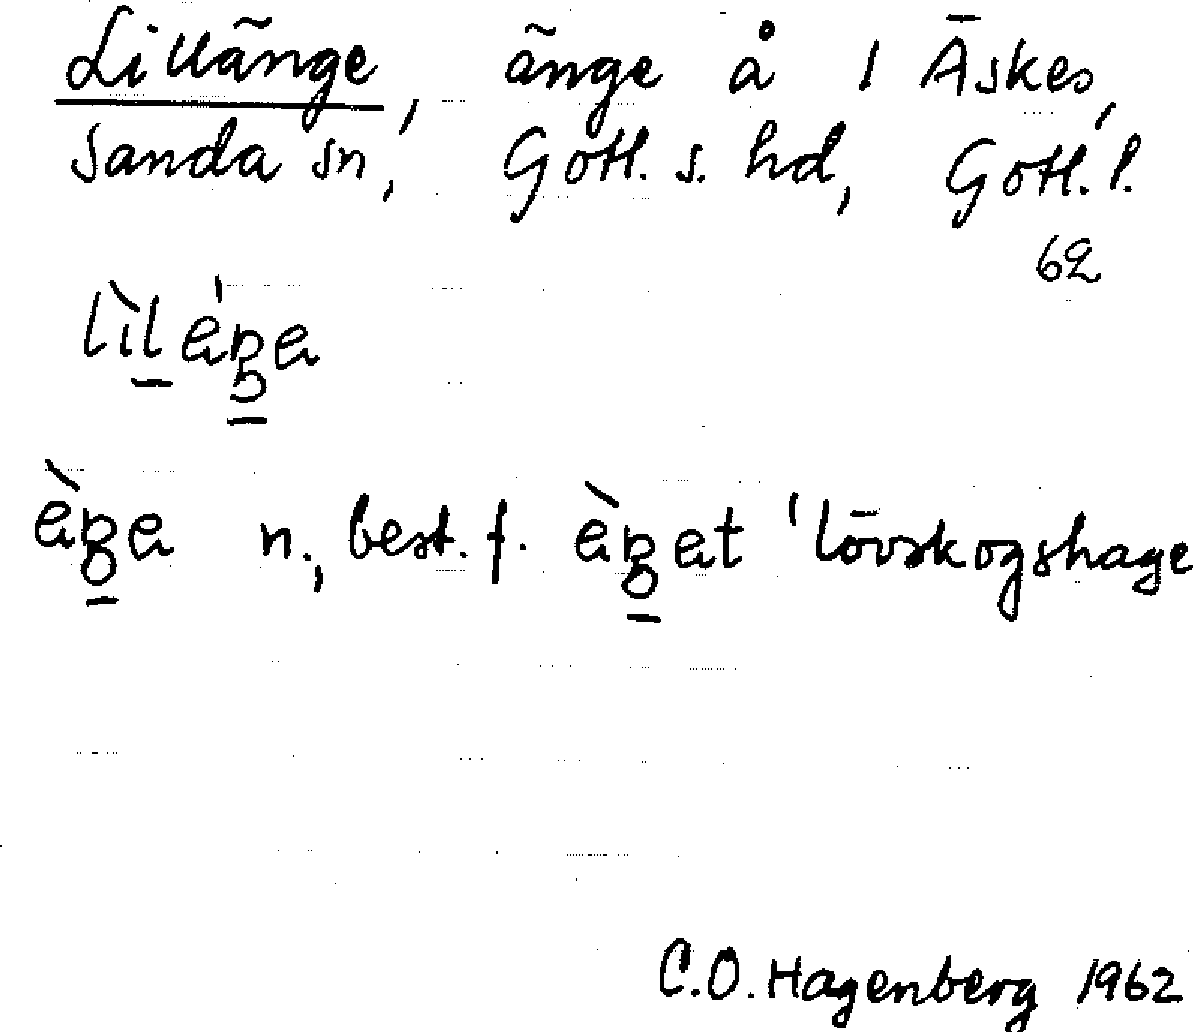 Lillänge, änge å 1 Äskes,
Sanda sn, Gotl. s. hd, Gotl. l.
62
n., best. f. 'lövskogshage
C.O. Hagenberg 1962